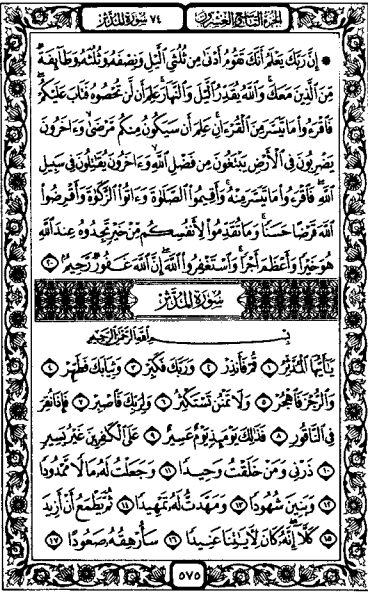 الجزء التاسع والعشرون
٧٤ سورة المدثر
۞ إِنَّ رَبَّكَ يَعْلَمُ أَنَّكَ تَقُومُ أَدْنَىٰ مِن ثُلُثَيِ ٱلَّيْلِ وَنِصْفَهُۥ وَثُلُثَهُۥ وَطَآئِفَةٌ
مِّنَ ٱلَّذِينَ مَعَكَ ۚ وَٱللَّهُ يُقَدِّرُ ٱلَّيْلَ وَٱلنَّهَارَ ۚ عَلِمَ أَن لَّن تُحْصُوهُ فَتَابَ عَلَيْكُمْ ۖ
فَٱقْرَءُوا۟ مَا تَيَسَّرَ مِنَ ٱلْقُرْءَانِ ۚ عَلِمَ أَن سَيَكُونُ مِنكُم مَّرْضَىٰ ۙ وَءَاخَرُونَ
يَضْرِبُونَ فِى ٱلْأَرْضِ يَبْتَغُونَ مِن فَضْلِ ٱللَّهِ ۙ وَءَاخَرُونَ يُقَٰتِلُونَ فِى سَبِيلِ
ٱللَّهِ ۖ فَٱقْرَءُوا۟ مَا تَيَسَّرَ مِنْهُ ۚ وَأَقِيمُوا۟ ٱلصَّلَوٰةَ وَءَاتُوا۟ ٱلزَّكَوٰةَ وَأَقْرِضُوا۟
ٱللَّهَ قَرْضًا حَسَنًا ۚ وَمَا تُقَدِّمُوا۟ لِأَنفُسِكُم مِّنْ خَيْرٍ تَجِدُوهُ عِندَ ٱللَّهِ
هُوَ خَيْرًا وَأَعْظَمَ أَجْرًا ۚ وَٱسْتَغْفِرُوا۟ ٱللَّهَ ۖ إِنَّ ٱللَّهَ غَفُورٌ رَّحِيمٌۢ ٢٠
سورة المدثر
بِسْمِ ٱللَّهِ ٱلرَّحْمَٰنِ ٱلرَّحِيمِ
يَٰٓأَيُّهَا ٱلْمُدَّثِّرُ ١ قُمْ فَأَنذِرْ ٢ وَرَبَّكَ فَكَبِّرْ ٣ وَثِيَابَكَ فَطَهِّرْ ٤
وَٱلرُّجْزَ فَٱهْجُرْ ٥ وَلَا تَمْنُن تَسْتَكْثِرُ ٦ وَلِرَبِّكَ فَٱصْبِرْ ٧ فَإِذَا نُقِرَ
فِى ٱلنَّاقُورِ ٨ فَذَٰلِكَ يَوْمَئِذٍ يَوْمٌ عَسِيرٌ ٩ عَلَى ٱلْكَٰفِرِينَ غَيْرُ يَسِيرٍ
١٠ ذَرْنِى وَمَنْ خَلَقْتُ وَحِيدًا ١١ وَجَعَلْتُ لَهُۥ مَالًا مَّمْدُودًا
١٢ وَبَنِينَ شُهُودًا ١٣ وَمَهَّدتُّ لَهُۥ تَمْهِيدًا ١٤ ثُمَّ يَطْمَعُ أَنْ أَزِيدَ
١٥ كَلَّآ ۖ إِنَّهُۥ كَانَ لِءَايَٰتِنَا عَنِيدًا ١٦ سَأُرْهِقُهُۥ صَعُودًا ١٧
٥٧٥